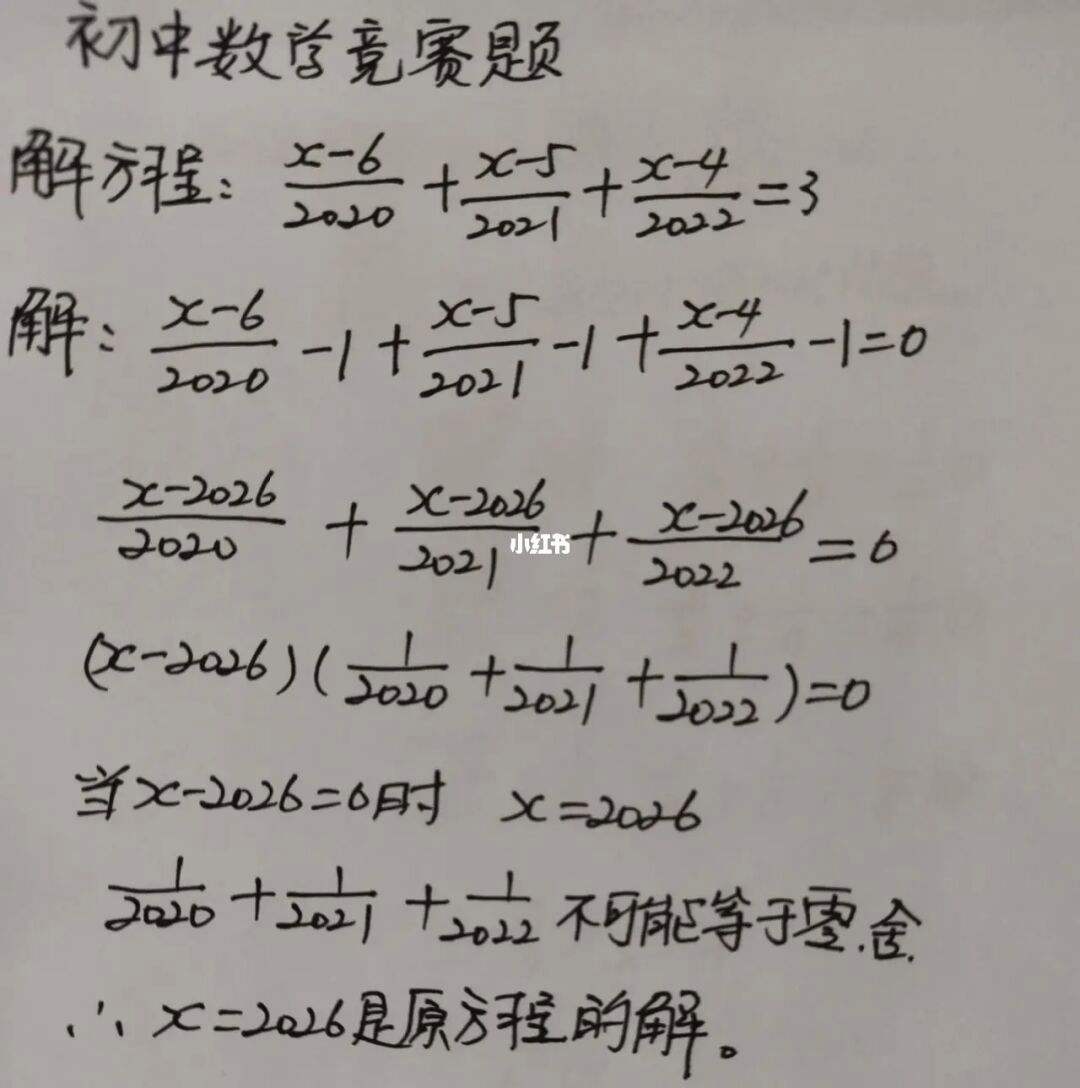 初中数学竞赛题
解方程: \frac{x-6}{2020} + \frac{x-5}{2021} + \frac{x-4}{2022} = 3
解: \frac{x-6}{2020} - 1 + \frac{x-5}{2021} - 1 + \frac{x-4}{2022} - 1 = 0
\frac{x-2026}{2020} + \frac{x-2026}{2021} + \frac{x-2026}{2022} = 0
小红书
(x-2026)(\frac{1}{2020} + \frac{1}{2021} + \frac{1}{2022}) = 0
当x-2026=0时 x=2026
\frac{1}{2020} + \frac{1}{2021} + \frac{1}{2022} 不可能等于零.舍.
∴ x=2026是原方程的解。